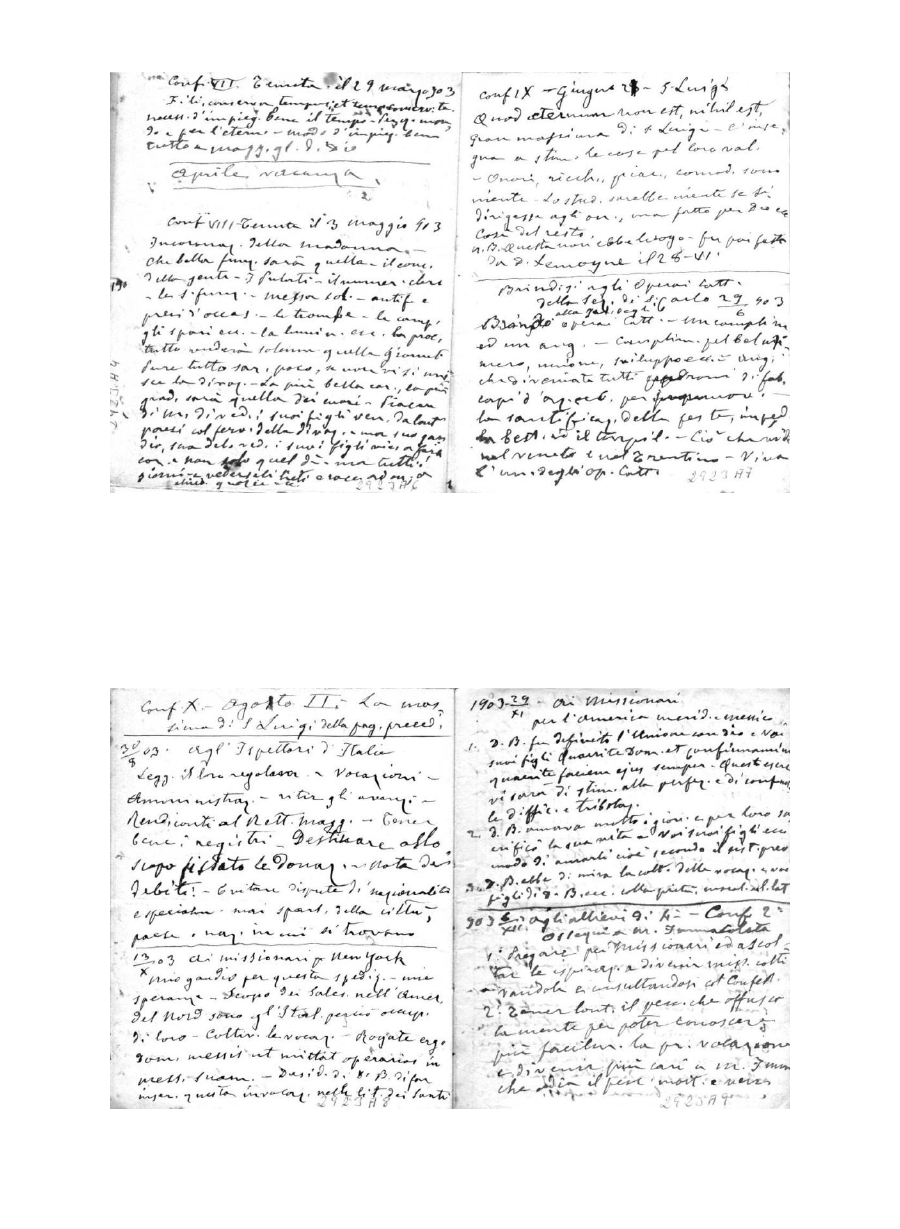 Conf. VII. Tenuta il 29 marzo 903
Fili, conserva tempus, et tempus conserv. te
necess. d'impieg. bene il tempo - pel mon
do e per l'eterne - modo d'impieg. bene
tutto a magg. gl. d. Dio
Aprile vacanza
2
Conf VIII - Tenuta il 3 maggio 903
Incoronaz. della Madonna -
che bella funz. sarà quella - il conc.
della gente - I Prelati - il numer. clero
- le s. funz. - messa sol. - antif. e
preci d'occas. - le trombe - le camp.
gli spari ecc. - la lumin. ecc. la proc.
tutto renderà solenn. quella giornata
Pure tutto sar. poco, se non vi si uni
sce la divoz. - La più bella cor., la più
grad. sarà quella dei cuori - Piacer
di M. di ved. i suoi figli ven. da lont.
paesi col fervi della divoz. - ma suo gau
dio, sua deliz. ved. i suoi figli
cor. e non solo quel dì - ma tutti i
giorni - e vederseli lieti
2923A6
Conf IX - Giugno 21 - S. Luigi
Quod eternum non est, nihil est,
gran massima di S. Luigi - C'inse,
gna a stim. le cose pel loro val.
- Onori, ricch., piac., comod. sono
niente - Lo stud. sarebbe niente se si
dirigesse agli on., ma fatto per Dio ec
Così del resto.
N.B. Questa non ebbe luogo - fu poi fatta
da d. Lemoyne il 28-VI.
Brindisi agli Operai Catt.
della Sez. di S. Carlo 29/6 903
Brindo operai Catt. - Un complim
ed un aug. - Complim. pel bel nu
mero, unione, sviluppo ecc. - aug.
che diveniate tutti padroni di fab.
capi d'az. ecc. per promuov.
la santificaz. della feste, imped
la best. ed il turpil. - Ciò che vidi
nel veneto e nel Trentino - Viva
l'un. degli Op. Catt.
2923A7
Conf X - Agosto II. La mas
sima di S Luigi della pag. preced.
30/8 03. Agl'Ispettori d'Italia
Legg. il
Amministraz. - ritir. gli avanzi -
Rendiconti al Rett. Magg. - Tener
bene i registri - Destinare allo
scopo fissato le Donaz. - nota dei
debiti - Evitare dispute di nazionalità
e specialm. mai sparl. della città,
paese o naz. in cui si trovano
13/X 03 Ai missionari p. New York
Mio gaudio per questa spediz. - mie
speranze - Scopo dei Sales. nell'Amer.
del Nord sono gl'Ital. perciò occup.
di loro - Coltiv. le vocaz. - Rogate ergo
dom. messis ut mittat operarios in
mess. suam. - Desid. di D. B. di far
inser. questa invocaz. nelle lit. dei Santi
2923A8
1903 29/XI - Ai Missionari
per l'America merid. e messic
1. D. B. fu definito l'Unione con Dio e Voi
suoi figli Quaerite Dom. et confirmamini
quaerite faciem ejus semper - Quest'eser
vi sarà di stim. alla perfez. e di conf
le diffic. e tribolaz.
2. D. B. amava molto i giov. e per loro sa
crificò la sua vita - Voi suoi figli ecc
modo di amarli cioè secondo il sist. prev
3. D. B. ebbe di mira la colt. delle vocaz. e voi
figli di D. B. ecc. colla pietà,
903 6/XII agli allievi di 4a - Conf 2a
Ossequi a M. Immacolata
1. Pregare per missionari ed ascol
tar le ispiraz. a divenir miss. colti
vandole e consultandosi col Confess.
2. Tener lont. il pecc. che offusca
la mente per poter conoscere
più facilm. la pr. vocazione
e divenir più cari a M. Imm
che odia il pecc. mort. e ven.
2923A9